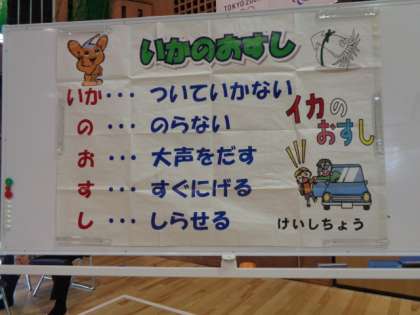 TOKYO 20
いかのおすし
いか・・・ついていかない
の・・・のらない
お・・・大声をだす
す・・・すぐにげる
し・・・しらせる
イカの
おすし
けいしちょう